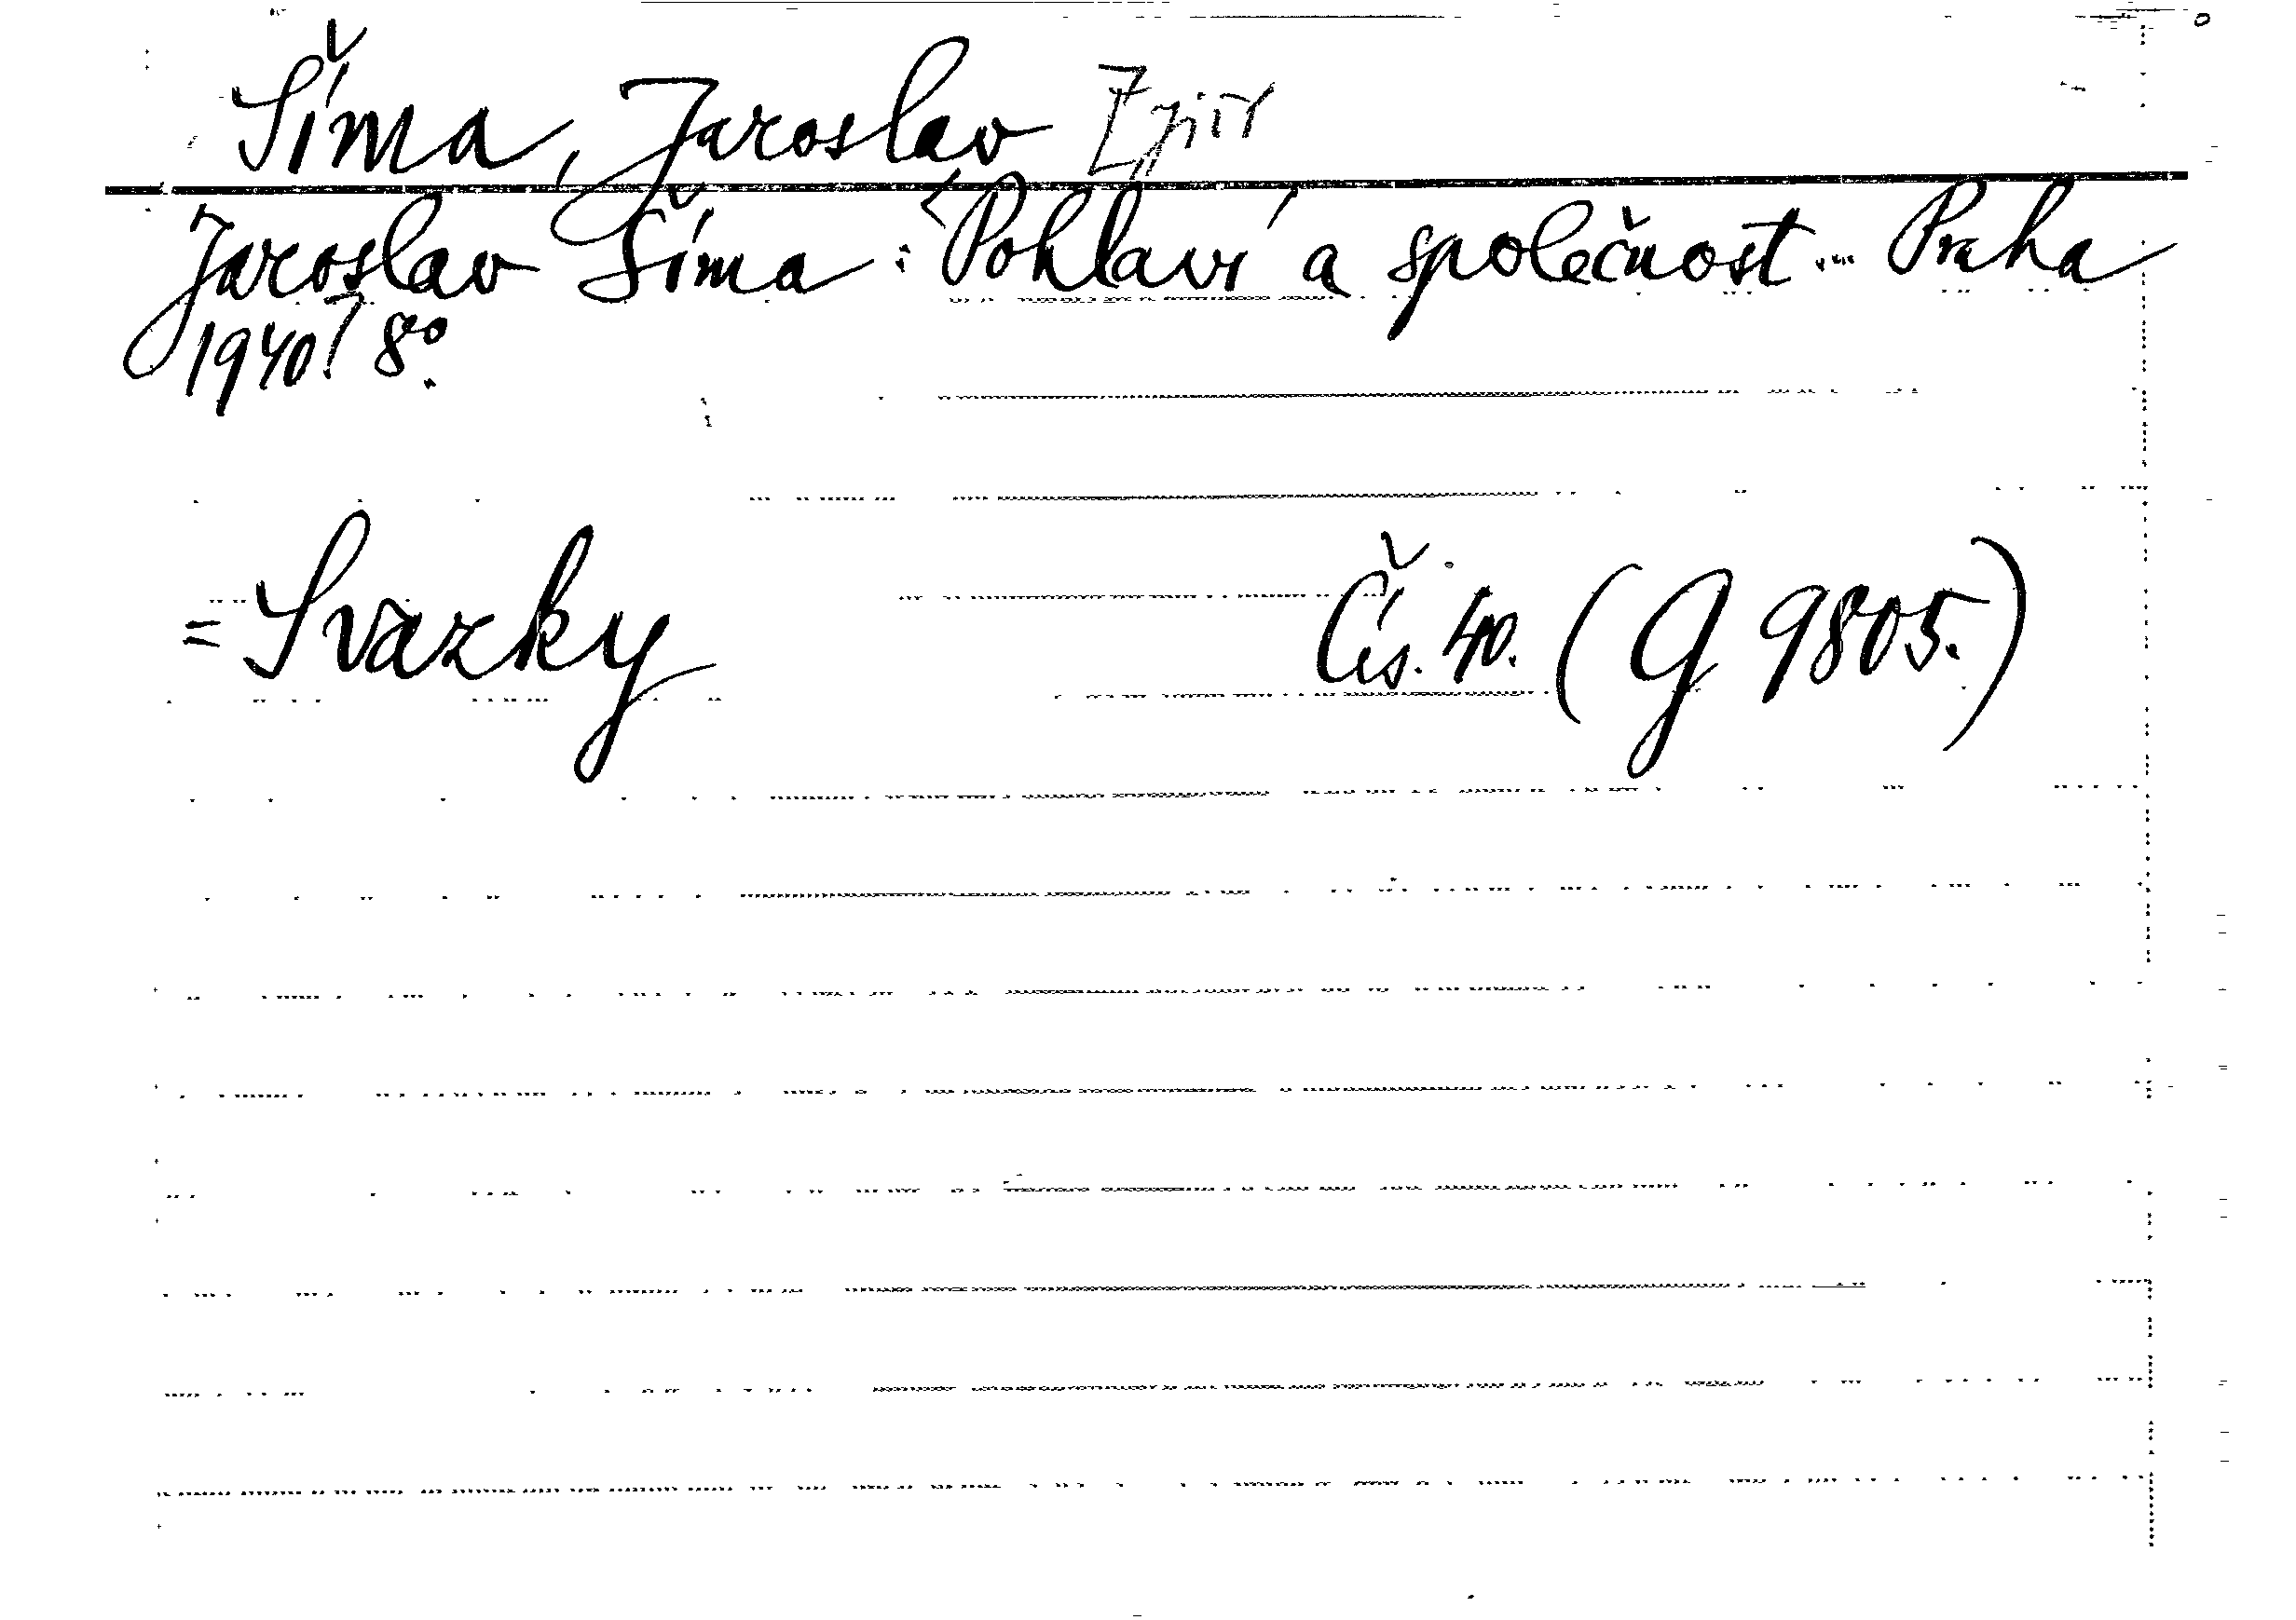 Šíma, Jaroslav
Jaroslav Šíma: Pohlaví a společnost... Praha
1940. 8°.
= Svazky Čís. 40. (G 9805.)